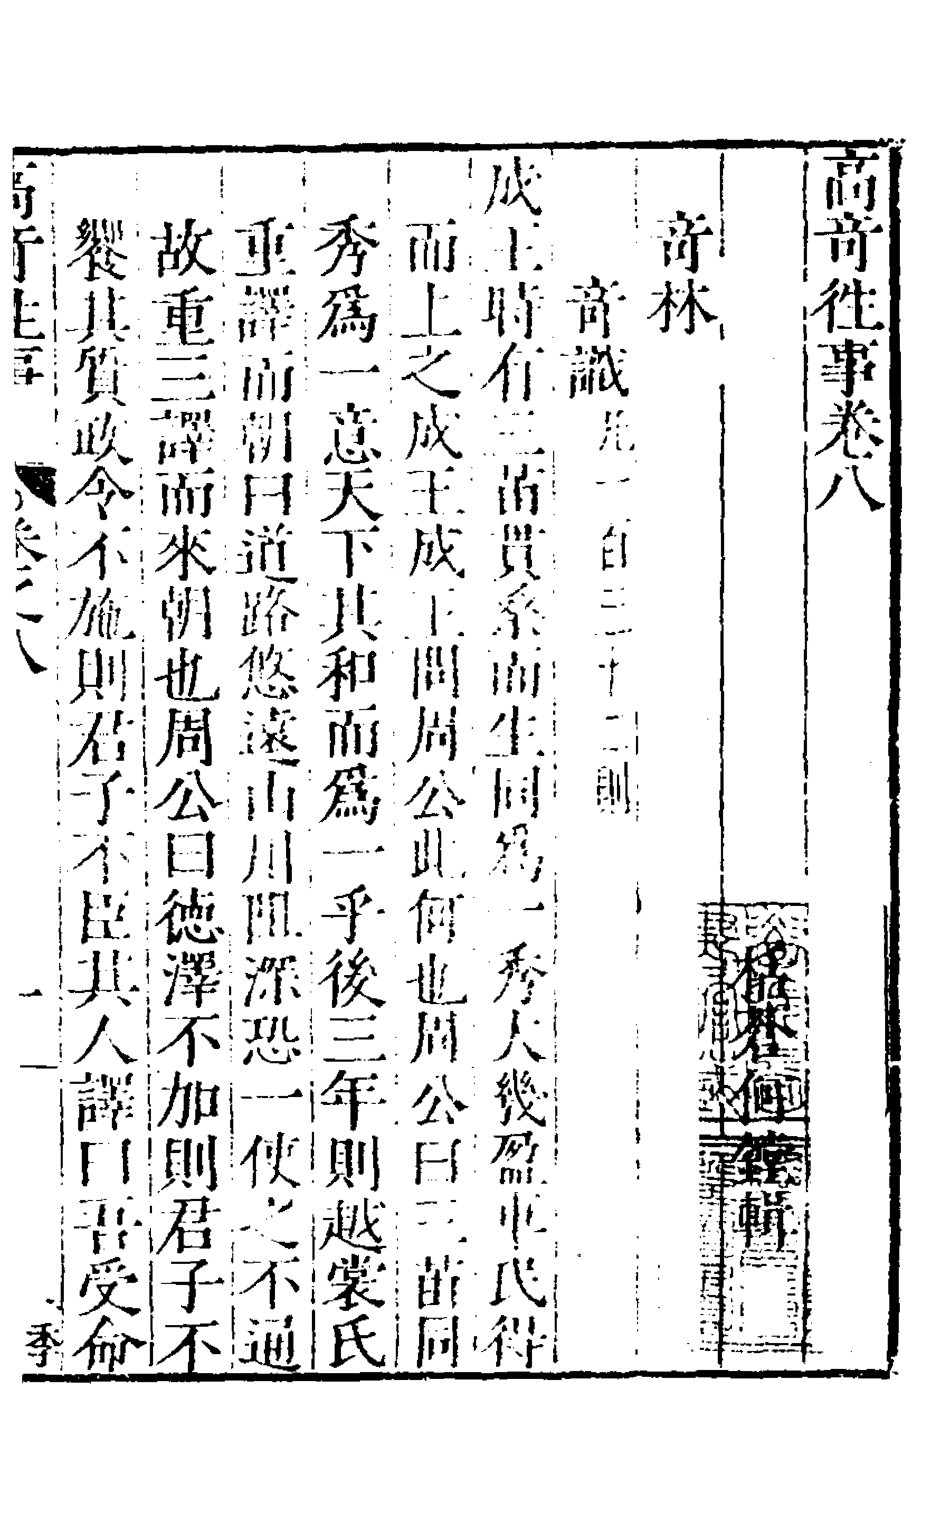 高奇徃事卷八
栝蒼何鏜輯
奇林
奇識凡一百三十二則
成王時有三苗貫桑而生同爲一秀大幾盈車民得
而上之成王成王問周公此何也周公曰三苗同
秀爲一意天下其和而爲一乎後三年則越裳氏
重譯而朝曰道路悠遠山川阻深恐一使之不通
故重三譯而來朝也周公曰德澤不加則君子不
饗其質政令不施則君子不臣其人譯曰吾受命
高奇徃事
卷之八
一
季